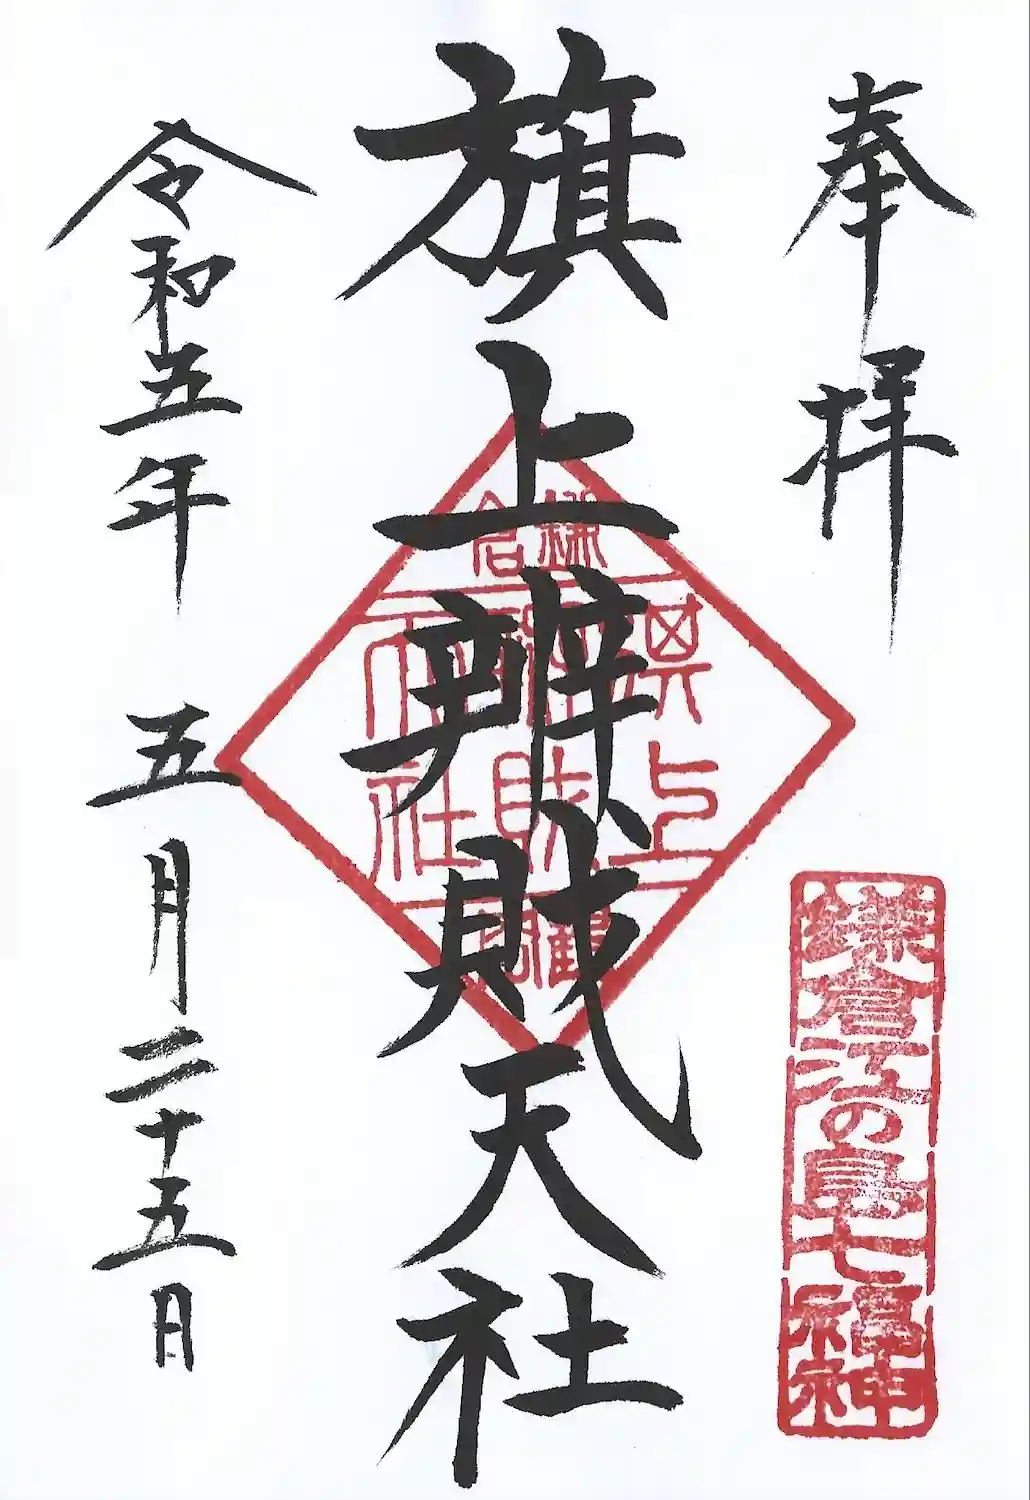 奉拝
鎌倉江の島七福神
旗上辨財天社
鎌倉
旗上
辨財
天社
鶴岡
令和五年 五月二十五日